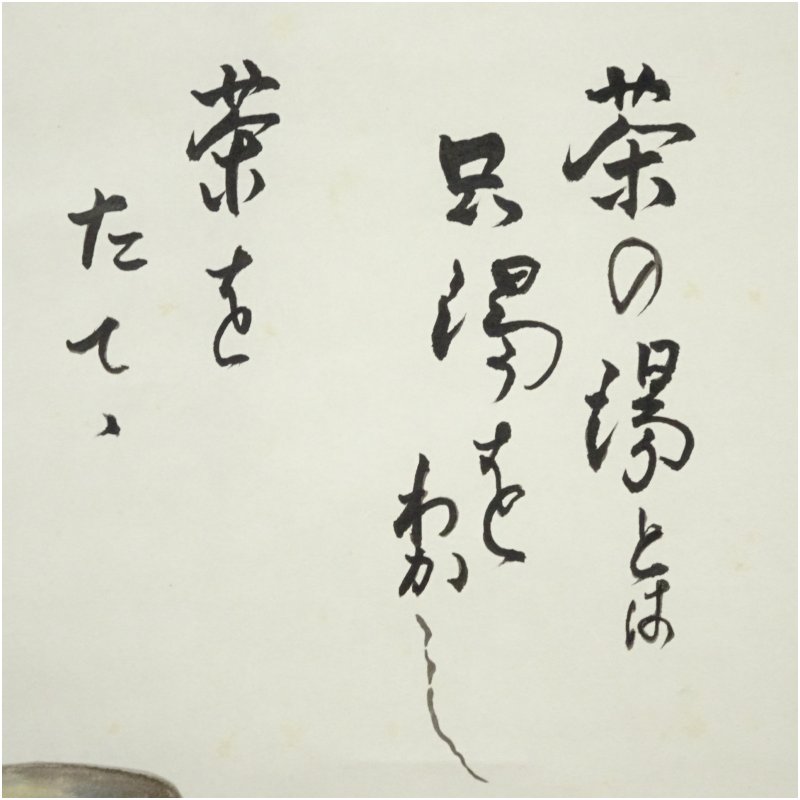 茶の湯とは
只湯を
わかし
茶を
たてゝ